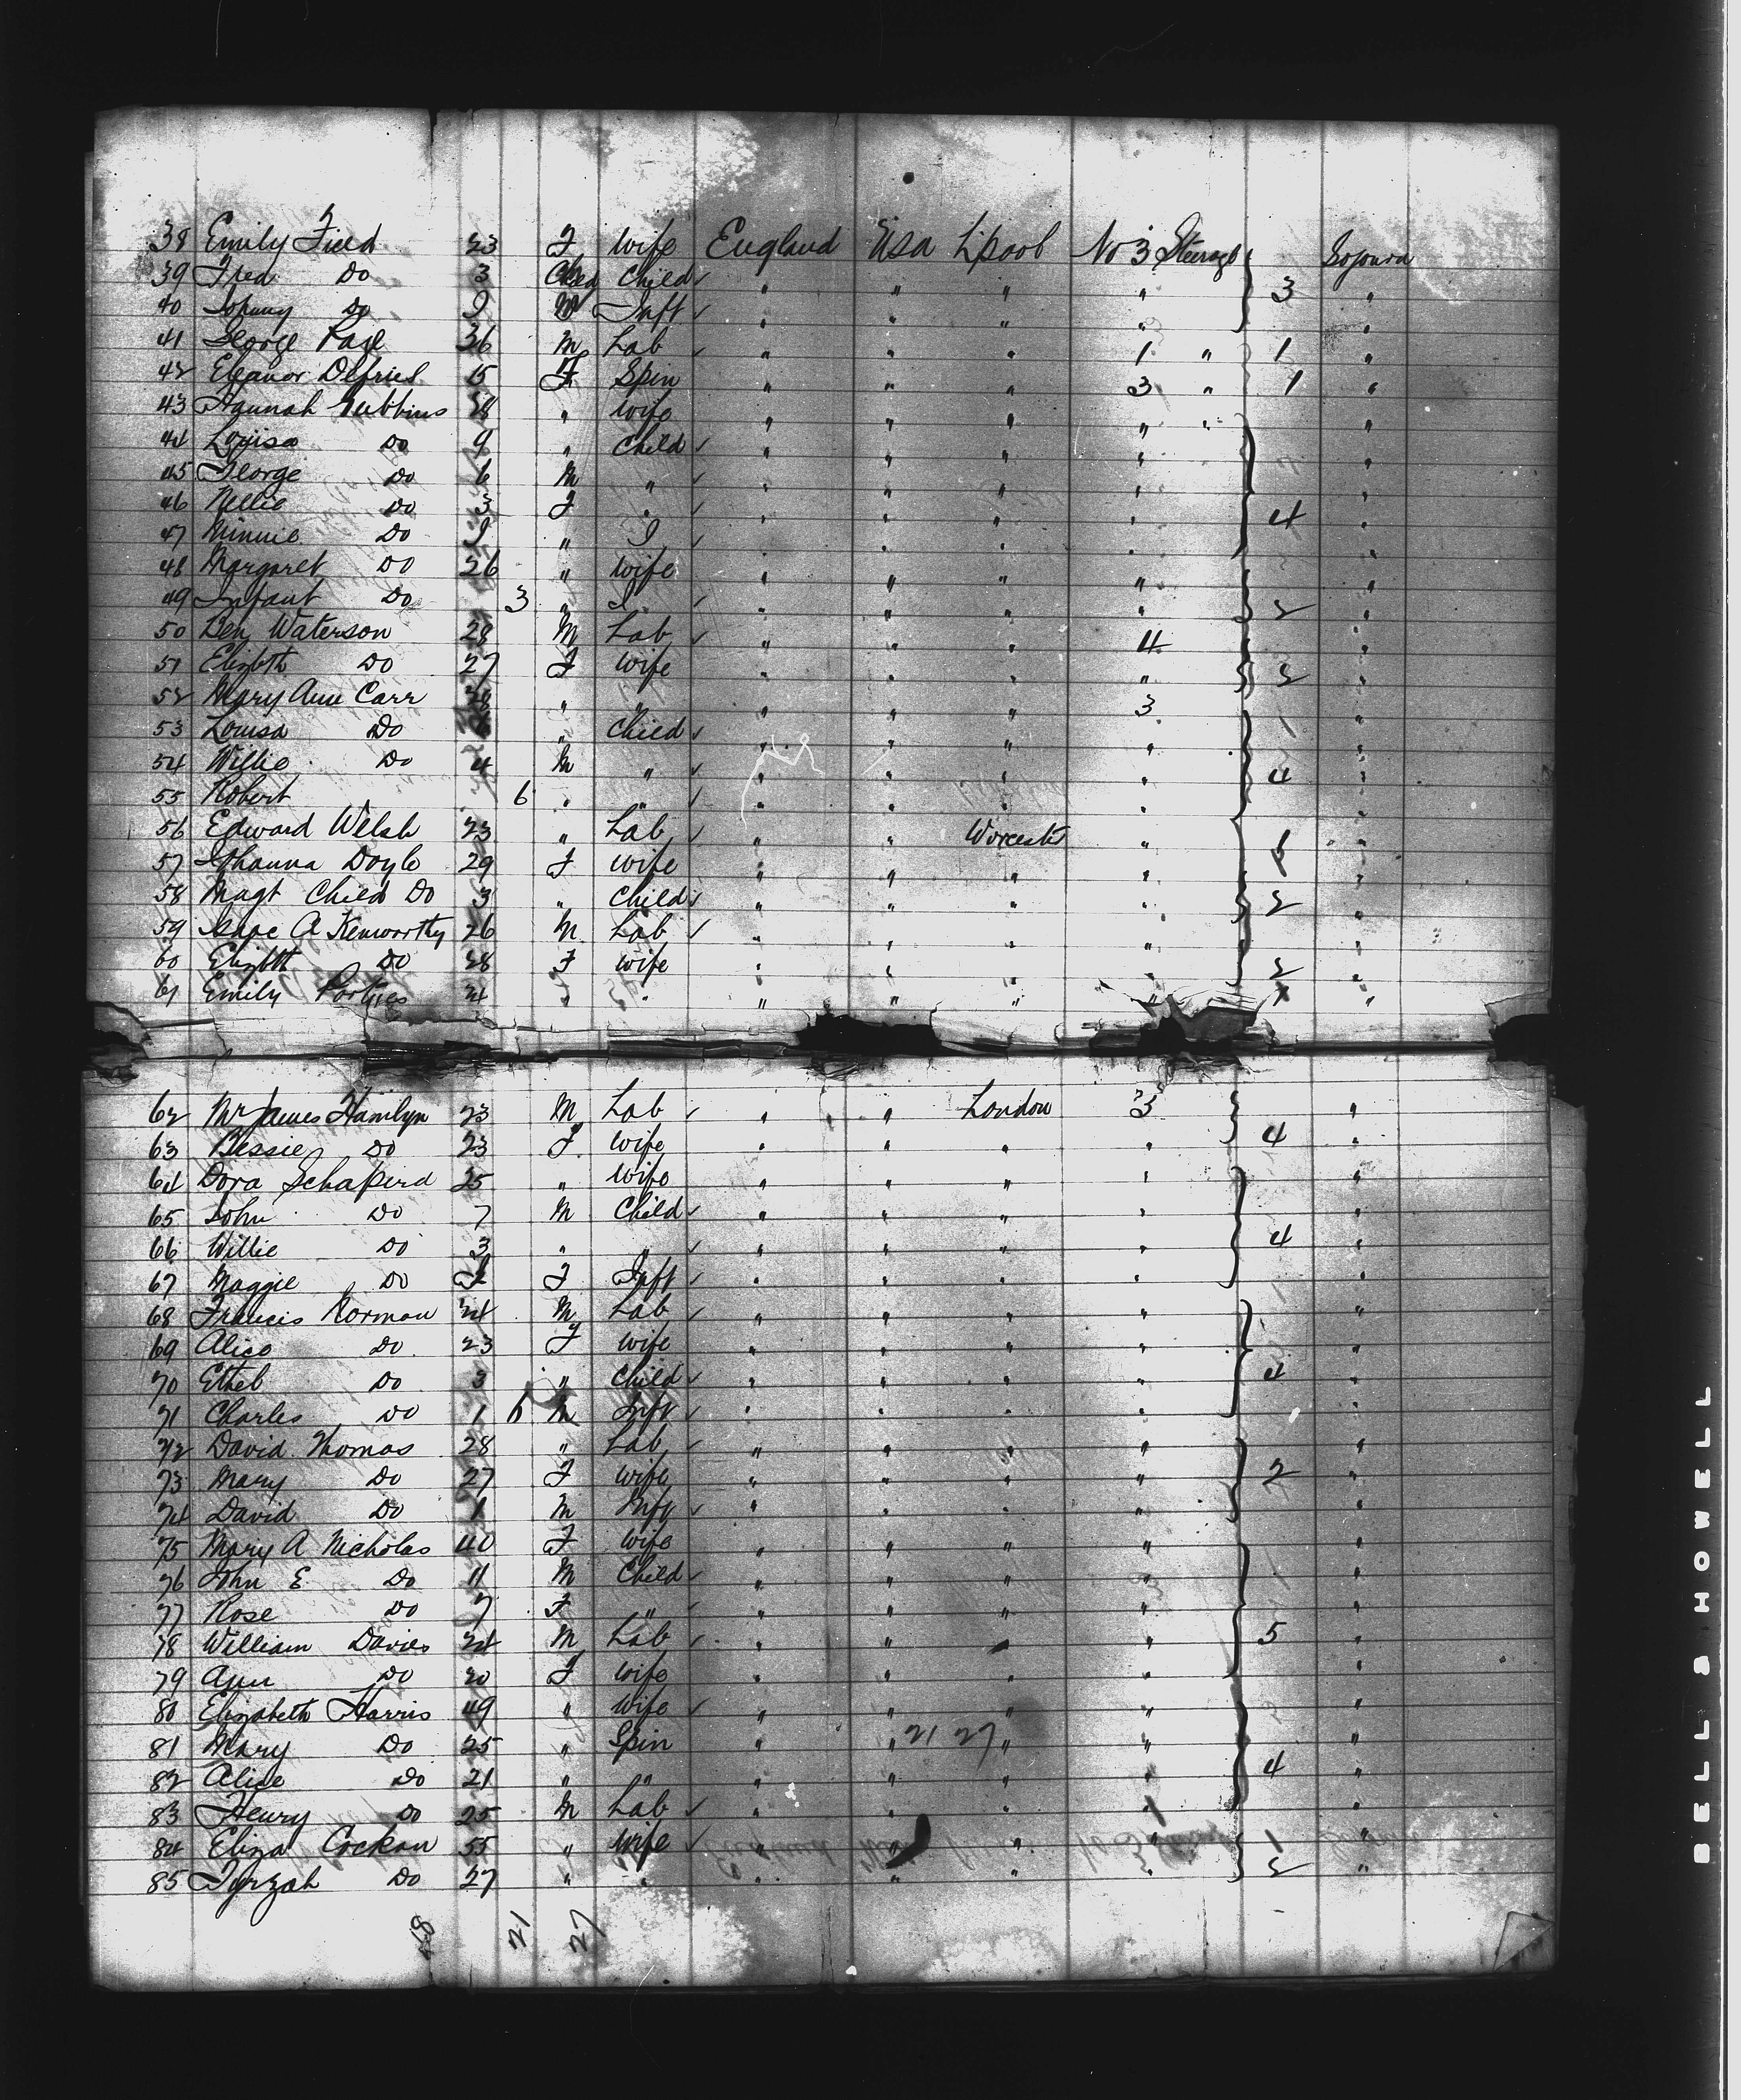 38 Emily Field 23 F Wife England Usa L'pool No 3 Steerage Sojourn
39 Fred Do 3 Child Child ✓ " " " " 3 "
40 Johnny Do I M Inft ✓ " " " " "
41 George Page 36 M Lab ✓ " " " 1 " 1 "
42 Eleanor 15 F Spin " " " 3 " 1 "
43 Hannah Gubbins 28 " Wife " " " " " "
44 Louisa Do 9 " Child ✓ " " " " "
45 George Do 6 M " ✓ " " " " "
46 Nellie Do 3 F " ✓ " " " " 4 "
47 Minnie Do I " I ✓ " " " " "
48 Margaret Do 26 " Wife " " " " "
49 Infant Do 3 " I ✓ " " " " 2 "
50 Ben Waterson 28 M Lab ✓ " " " 4 "
51 Elizbth Do 27 F Wife " " " " 2 "
52 Mary Ann Carr 28 " " " " " 3 "
53 Louisa Do 6 " Child ✓ " " " " "
54 Willie Do 4 M " ✓ " " " " 4 "
55 Robert 6 " " ✓ " " " " "
56 Edward Welsh 23 " Lab ✓ " " Worcester " 1 "
57 Johanna Doyle 29 F Wife " " " " "
58 Magt Child Do 3 " Child ✓ " " " " 2 "
59 Isaac A Kenworthy 26 M Lab ✓ " " " " "
60 Elizbth Do 28 F Wife " " " " 2 "
61 Emily 24 " " " " " " 1 "
62 Mr James Hamlyn 23 M Lab ✓ " " London 3 "
63 Bessie Do 23 F Wife " " " " 4 "
64 Dora Schapird 25 " Wife " " " " "
65 John Do 7 M Child ✓ " " " " "
66 Willie Do 3 " " ✓ " " " " 4 "
67 Maggie Do I F Inft ✓ " " " " "
68 Francis Norman 24 M Lab ✓ " " " " "
69 Alice Do 23 F Wife " " " " "
70 Ethel Do 3 " Child ✓ " " " " 4 "
71 Charles Do 1 6 M Inft ✓ " " " " "
72 David Thomas 28 " Lab ✓ " " " " "
73 Mary Do 27 F Wife " " " " 2 "
74 David Do 1 M Inft ✓ " " " " "
75 Mary A Nicholas 40 F Wife " " " " "
76 John E Do 11 M Child ✓ " " " " "
77 Rose Do 7 F " ✓ " " " " "
78 William Davies 24 M Lab ✓ " " " " 5 "
79 Ann Do 20 F Wife " " " " "
80 Elizabeth Harris 49 " Wife ✓ " " " " "
81 Mary Do 25 " Spin " " 21 27 " " "
82 Alice Do 21 " " " " " " 4 "
83 Henry Do 25 M Lab ✓ " " " 1 "
84 Eliza Cockan 55 " Wife ✓ " " " " 1 "
85 Tyrzah Do 27 " " " " " " 2 "
48 21 27
BELL & HOWELL